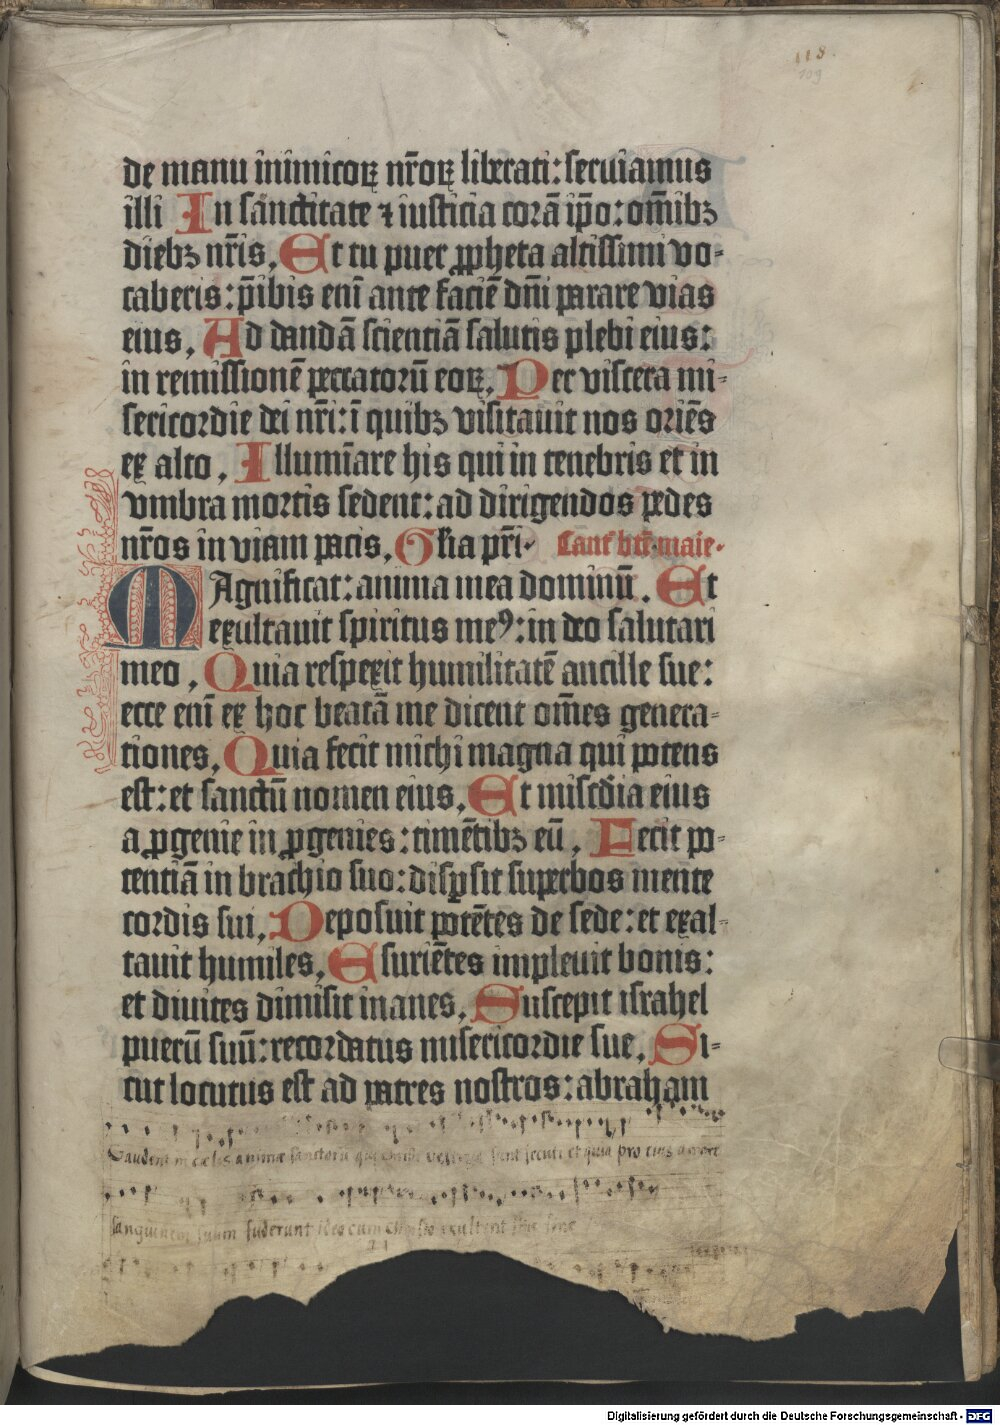 118.
109
de manu inimicoꝝ nr̄oꝝ liberati: seruiamus
illi In sanctitate ⁊ iusticia corā ip̄o: om̄ibꝫ
diebꝫ nr̄is, Et tu puer ꝓpheta altissimi vo-
caberis: p̄ibis eni̅ ante faciē dn̄i parare vias
eius, Ad dandā scientiā salutis plebi eius:
in remissionē peccatorū eoꝝ, Per viscera mi-
sericordie dei nr̄i: ī quibꝫ visitauit nos oriēs
ex alto, Illumīare his qui in tenebris et in
vmbra mortis sedent: ad dirigendos pedes
nr̄os in viam pacis, Gl̄ia pr̄i. Cant̄ bt̄e maie.
MAgnificat: anima mea dominū. Et
exultauit spiritus meꝰ: in deo salutari
meo, Quia respexit humilitatē ancille sue:
ecce eni̅ ex hoc beatā me dicent om̄es genera-
tiones, Quia fecit michi magna qui potens
est: et sanctū nomen eius, Et mis̄c̄dia eius
a ꝓgenie in ꝓgenies: timētibꝫ eū, Fecit po-
tentiā in brachio suo: disꝑsit superbos mente
cordis sui, Deposuit potētes de sede: et exal-
tauit humiles, Esuriētes impleuit bonis:
et diuites dimisit inanes, Suscepit israhel
puerū suū: recordatus misericordie sue, Si-
cut locutus est ad patres nostros: abraham
Gaudent in cœlis animæ sanctorū qui Christi vestigia sunt secuti et quia pro eius amore
sanguinem suum fuderunt ideo cum Christo exultent sine fine
Digitalisierung gefördert durch die Deutsche Forschungsgemeinschaft - DFG